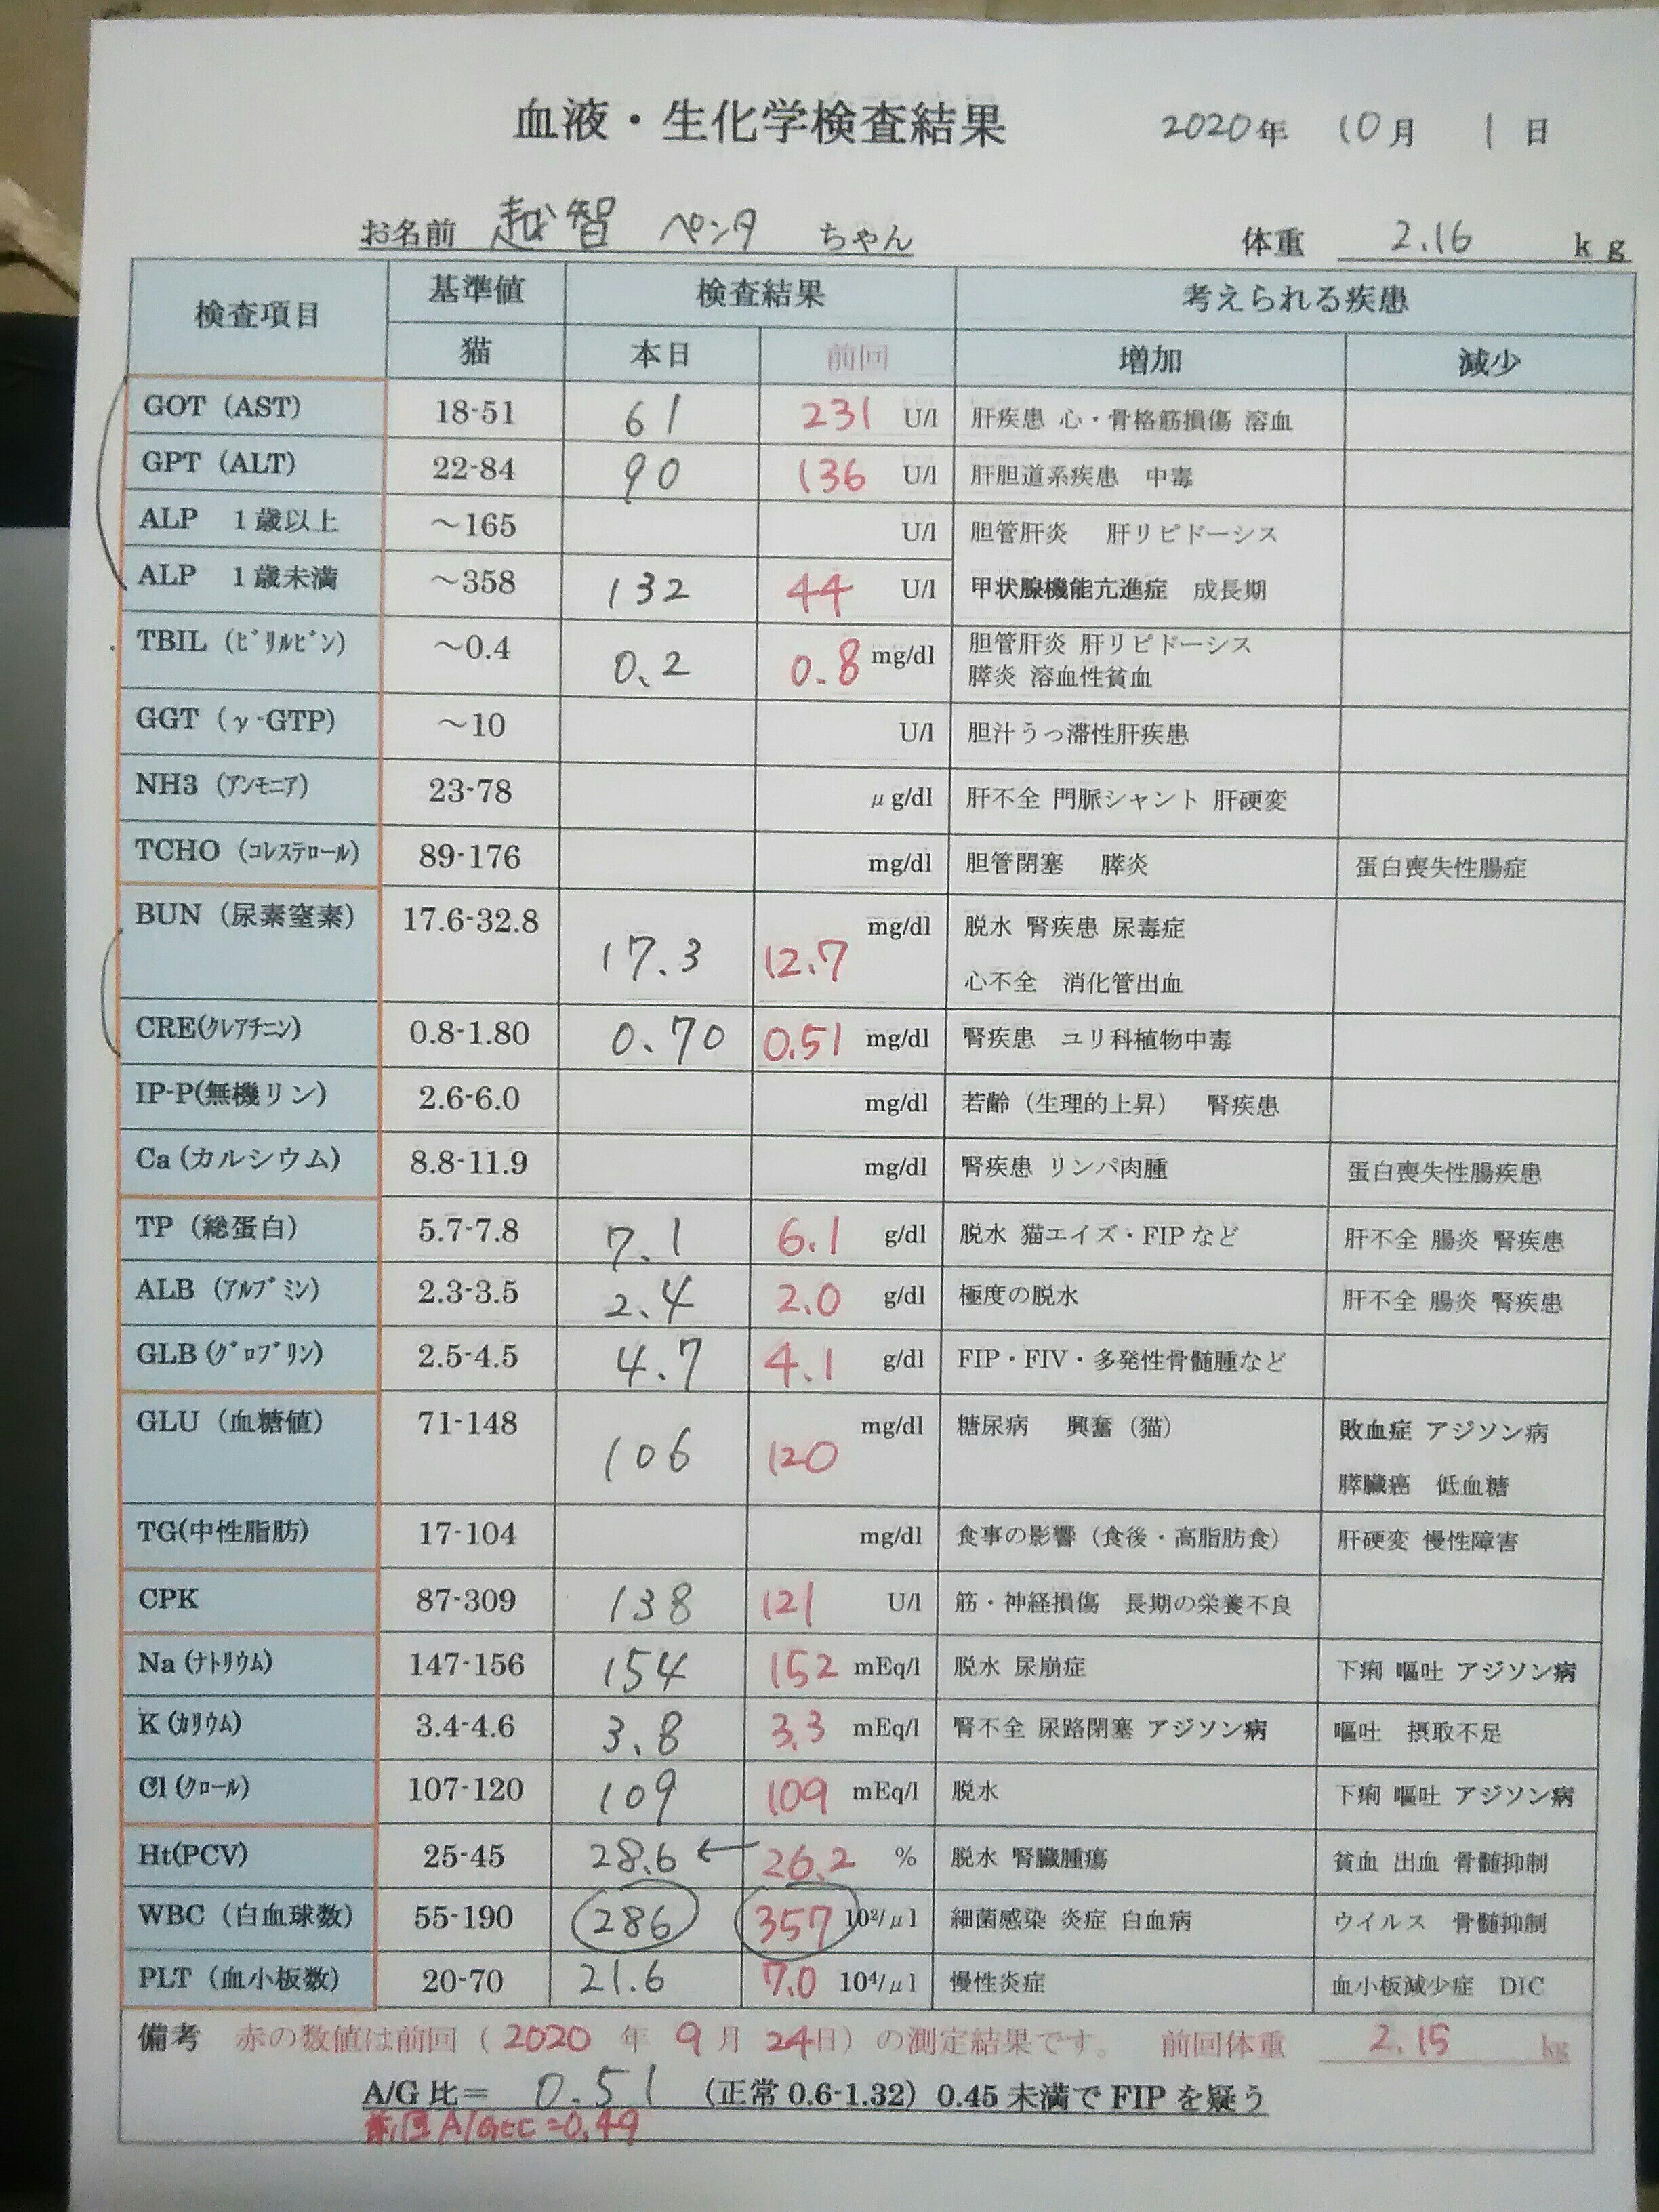 血液・生化学検査結果 2020年 10月 1日
お名前 越智 ペンタ ちゃん 体重 2.16 kg
検査項目 基準値 検査結果 考えられる疾患
猫 本日 前回 増加 減少
GOT (AST) 18-51 61 231 U/l 肝疾患 心・骨格筋損傷 溶血
GPT (ALT) 22-84 90 136 U/l 肝胆道系疾患 中毒
ALP 1歳以上 ～165 U/l 胆管肝炎 肝リピドーシス
ALP 1歳未満 ～358 132 44 U/l 甲状腺機能亢進症 成長期
TBIL (ﾋﾞﾘﾙﾋﾞﾝ) ～0.4 0.2 0.8 mg/dl 胆管肝炎 肝リピドーシス
膵炎 溶血性貧血
GGT (γ-GTP) ～10 U/l 胆汁うっ滞性肝疾患
NH3 (ｱﾝﾓﾆｱ) 23-78 μg/dl 肝不全 門脈シャント 肝硬変
TCHO (ｺﾚｽﾃﾛｰﾙ) 89-176 mg/dl 胆管閉塞 膵炎 蛋白喪失性腸症
BUN (尿素窒素) 17.6-32.8 17.3 12.7 mg/dl 脱水 腎疾患 尿毒症
心不全 消化管出血
CRE(ｸﾚｱﾁﾆﾝ) 0.8-1.80 0.70 0.51 mg/dl 腎疾患 ユリ科植物中毒
IP-P(無機リン) 2.6-6.0 mg/dl 若齢（生理的上昇） 腎疾患
Ca (カルシウム) 8.8-11.9 mg/dl 腎疾患 リンパ肉腫 蛋白喪失性腸疾患
TP (総蛋白) 5.7-7.8 7.1 6.1 g/dl 脱水 猫エイズ・FIP など 肝不全 腸炎 腎疾患
ALB (ｱﾙﾌﾞﾐﾝ) 2.3-3.5 2.4 2.0 g/dl 極度の脱水 肝不全 腸炎 腎疾患
GLB (ｸﾞﾛﾌﾞﾘﾝ) 2.5-4.5 4.7 4.1 g/dl FIP・FIV・多発性骨髄腫など
GLU (血糖値) 71-148 106 120 mg/dl 糖尿病 興奮（猫） 敗血症 アジソン病
膵臓癌 低血糖
TG(中性脂肪) 17-104 mg/dl 食事の影響（食後・高脂肪食） 肝硬変 慢性障害
CPK 87-309 138 121 U/l 筋・神経損傷 長期の栄養不良
Na (ﾅﾄﾘｳﾑ) 147-156 154 152 mEq/l 脱水 尿崩症 下痢 嘔吐 アジソン病
K (ｶﾘｳﾑ) 3.4-4.6 3.8 3.3 mEq/l 腎不全 尿路閉塞 アジソン病 嘔吐 摂取不足
Cl (ｸﾛｰﾙ) 107-120 109 109 mEq/l 脱水 下痢 嘔吐 アジソン病
Ht(PCV) 25-45 28.6 ← 26.2 % 脱水 腎臓腫瘍 貧血 出血 骨髄抑制
WBC (白血球数) 55-190 286 357 10²/μl 細菌感染 炎症 白血病 ウイルス 骨髄抑制
PLT (血小板数) 20-70 21.6 7.0 10⁴/μl 慢性炎症 血小板減少症 DIC
備考 赤の数値は前回（2020 年 9 月 24日）の測定結果です。 前回体重 2.15 kg
A/G 比＝ 0.51 （正常 0.6-1.32）0.45 未満で FIP を疑う
前回A/G比=0.49